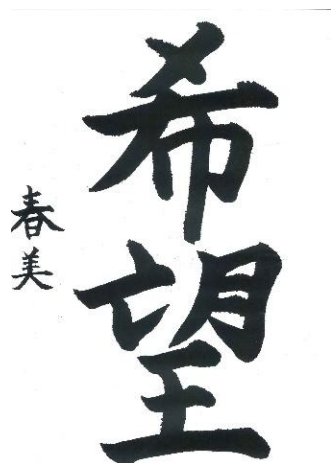 希望
春美